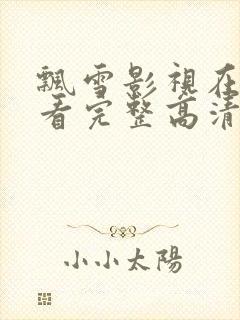 飄雪影視在
看完整高清
小小太陽